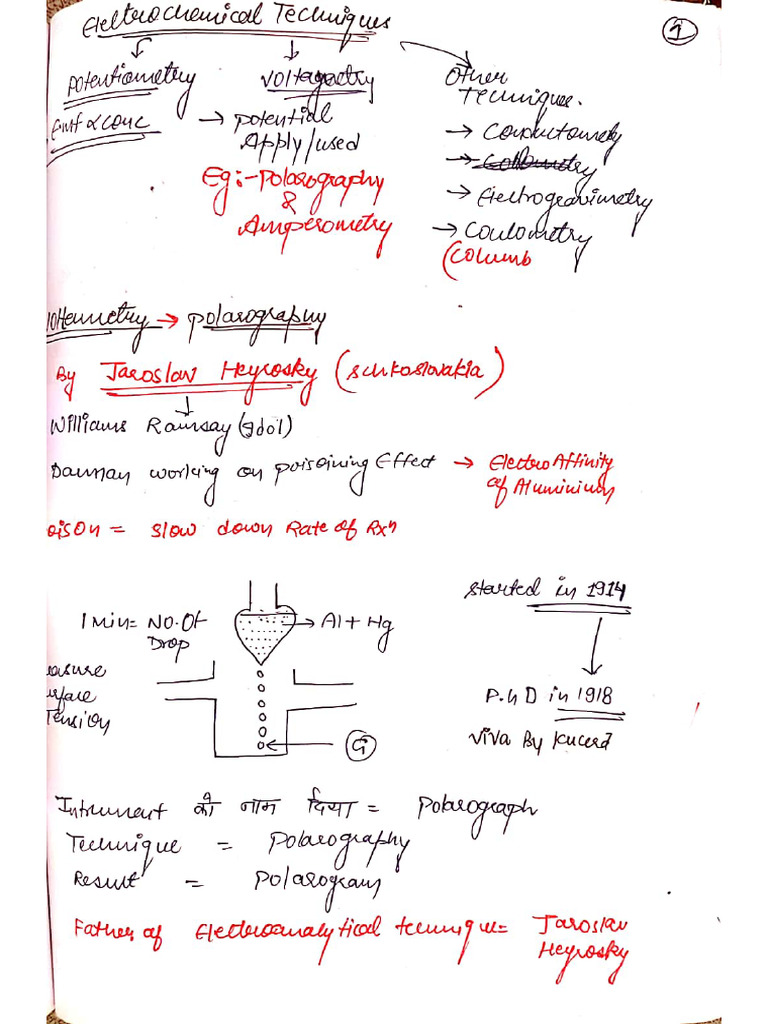 Elelterochemical Techniques
1
Potentiometry
Emf ∝ conc
Voltametry
→ potential
Apply/used
Eg:- Polarography
&
Amperometry
Other
Technique.
→ Conductometry
→ Electrogravimetry
→ Coulometry
(Columb
→ Polarography
By Jaroslav Heyrosky (Schkoslovakia)
Williams Ramsay (Idol)
Donnan working on poisoining Effect → Electro Affinity
of Aluminium
= Slow down Rate of Rxn
Started in 1914
P.hD in 1918
Viva By Kucera
1 Min = No. Of
Drop
→ Al + Hg
G
Intrument को नाम दिया = Polarograph
Technique = Polarography
Result = Polarogram
Father of Electroanalytical technique = Jaroslav
Heyrosky